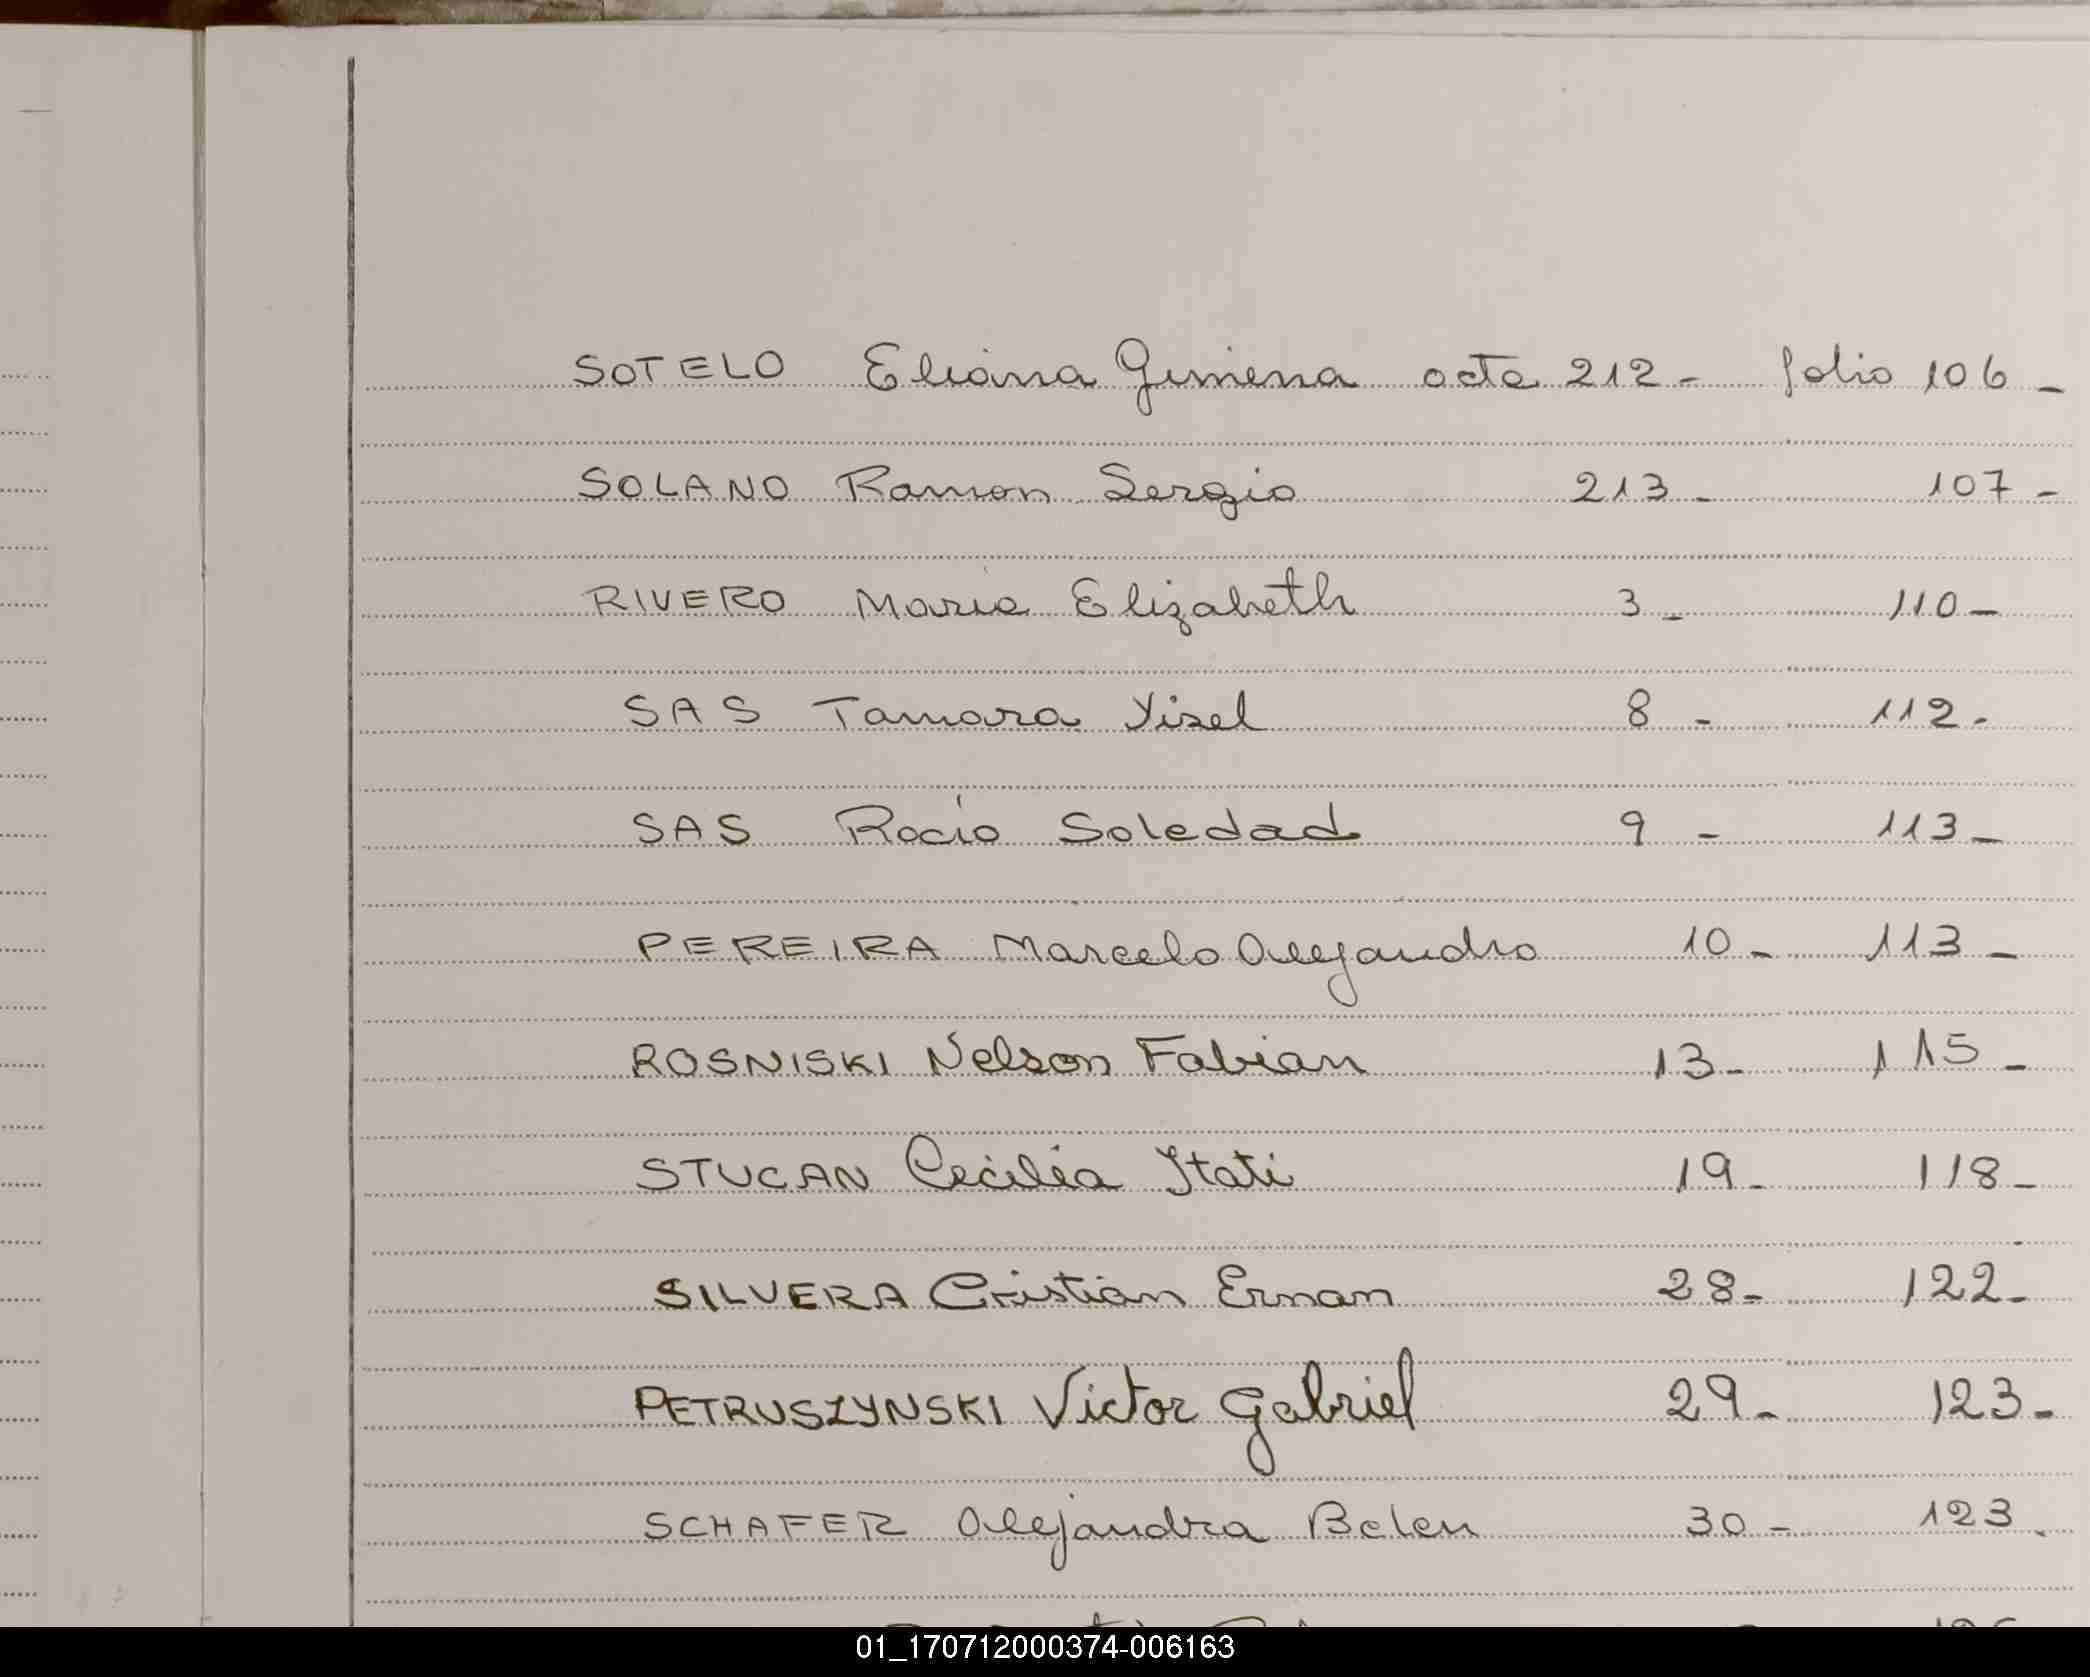 SOTELO Eliana Gimena acta 212 - folio 106 -
SOLANO Ramon Sergio 213 - 107 -
RIVERO Maria Elizabeth 3 - 110 -
SAS Tamara Yisel 8 - 112 -
SAS Rocío Soledad 9 - 113 -
PEREIRA Marcelo Alejandro 10 - 113 -
ROSNISKI Nelson Fabian 13 - 115 -
STUCAN Cecilia Itati 19 - 118 -
SILVERA Cristian Ernan 28 - 122 -
PETRUSZYNSKI Victor Gabriel 29 - 123 -
SCHAFER Alejandra Belen 30 - 123 -
01_170712000374-006163